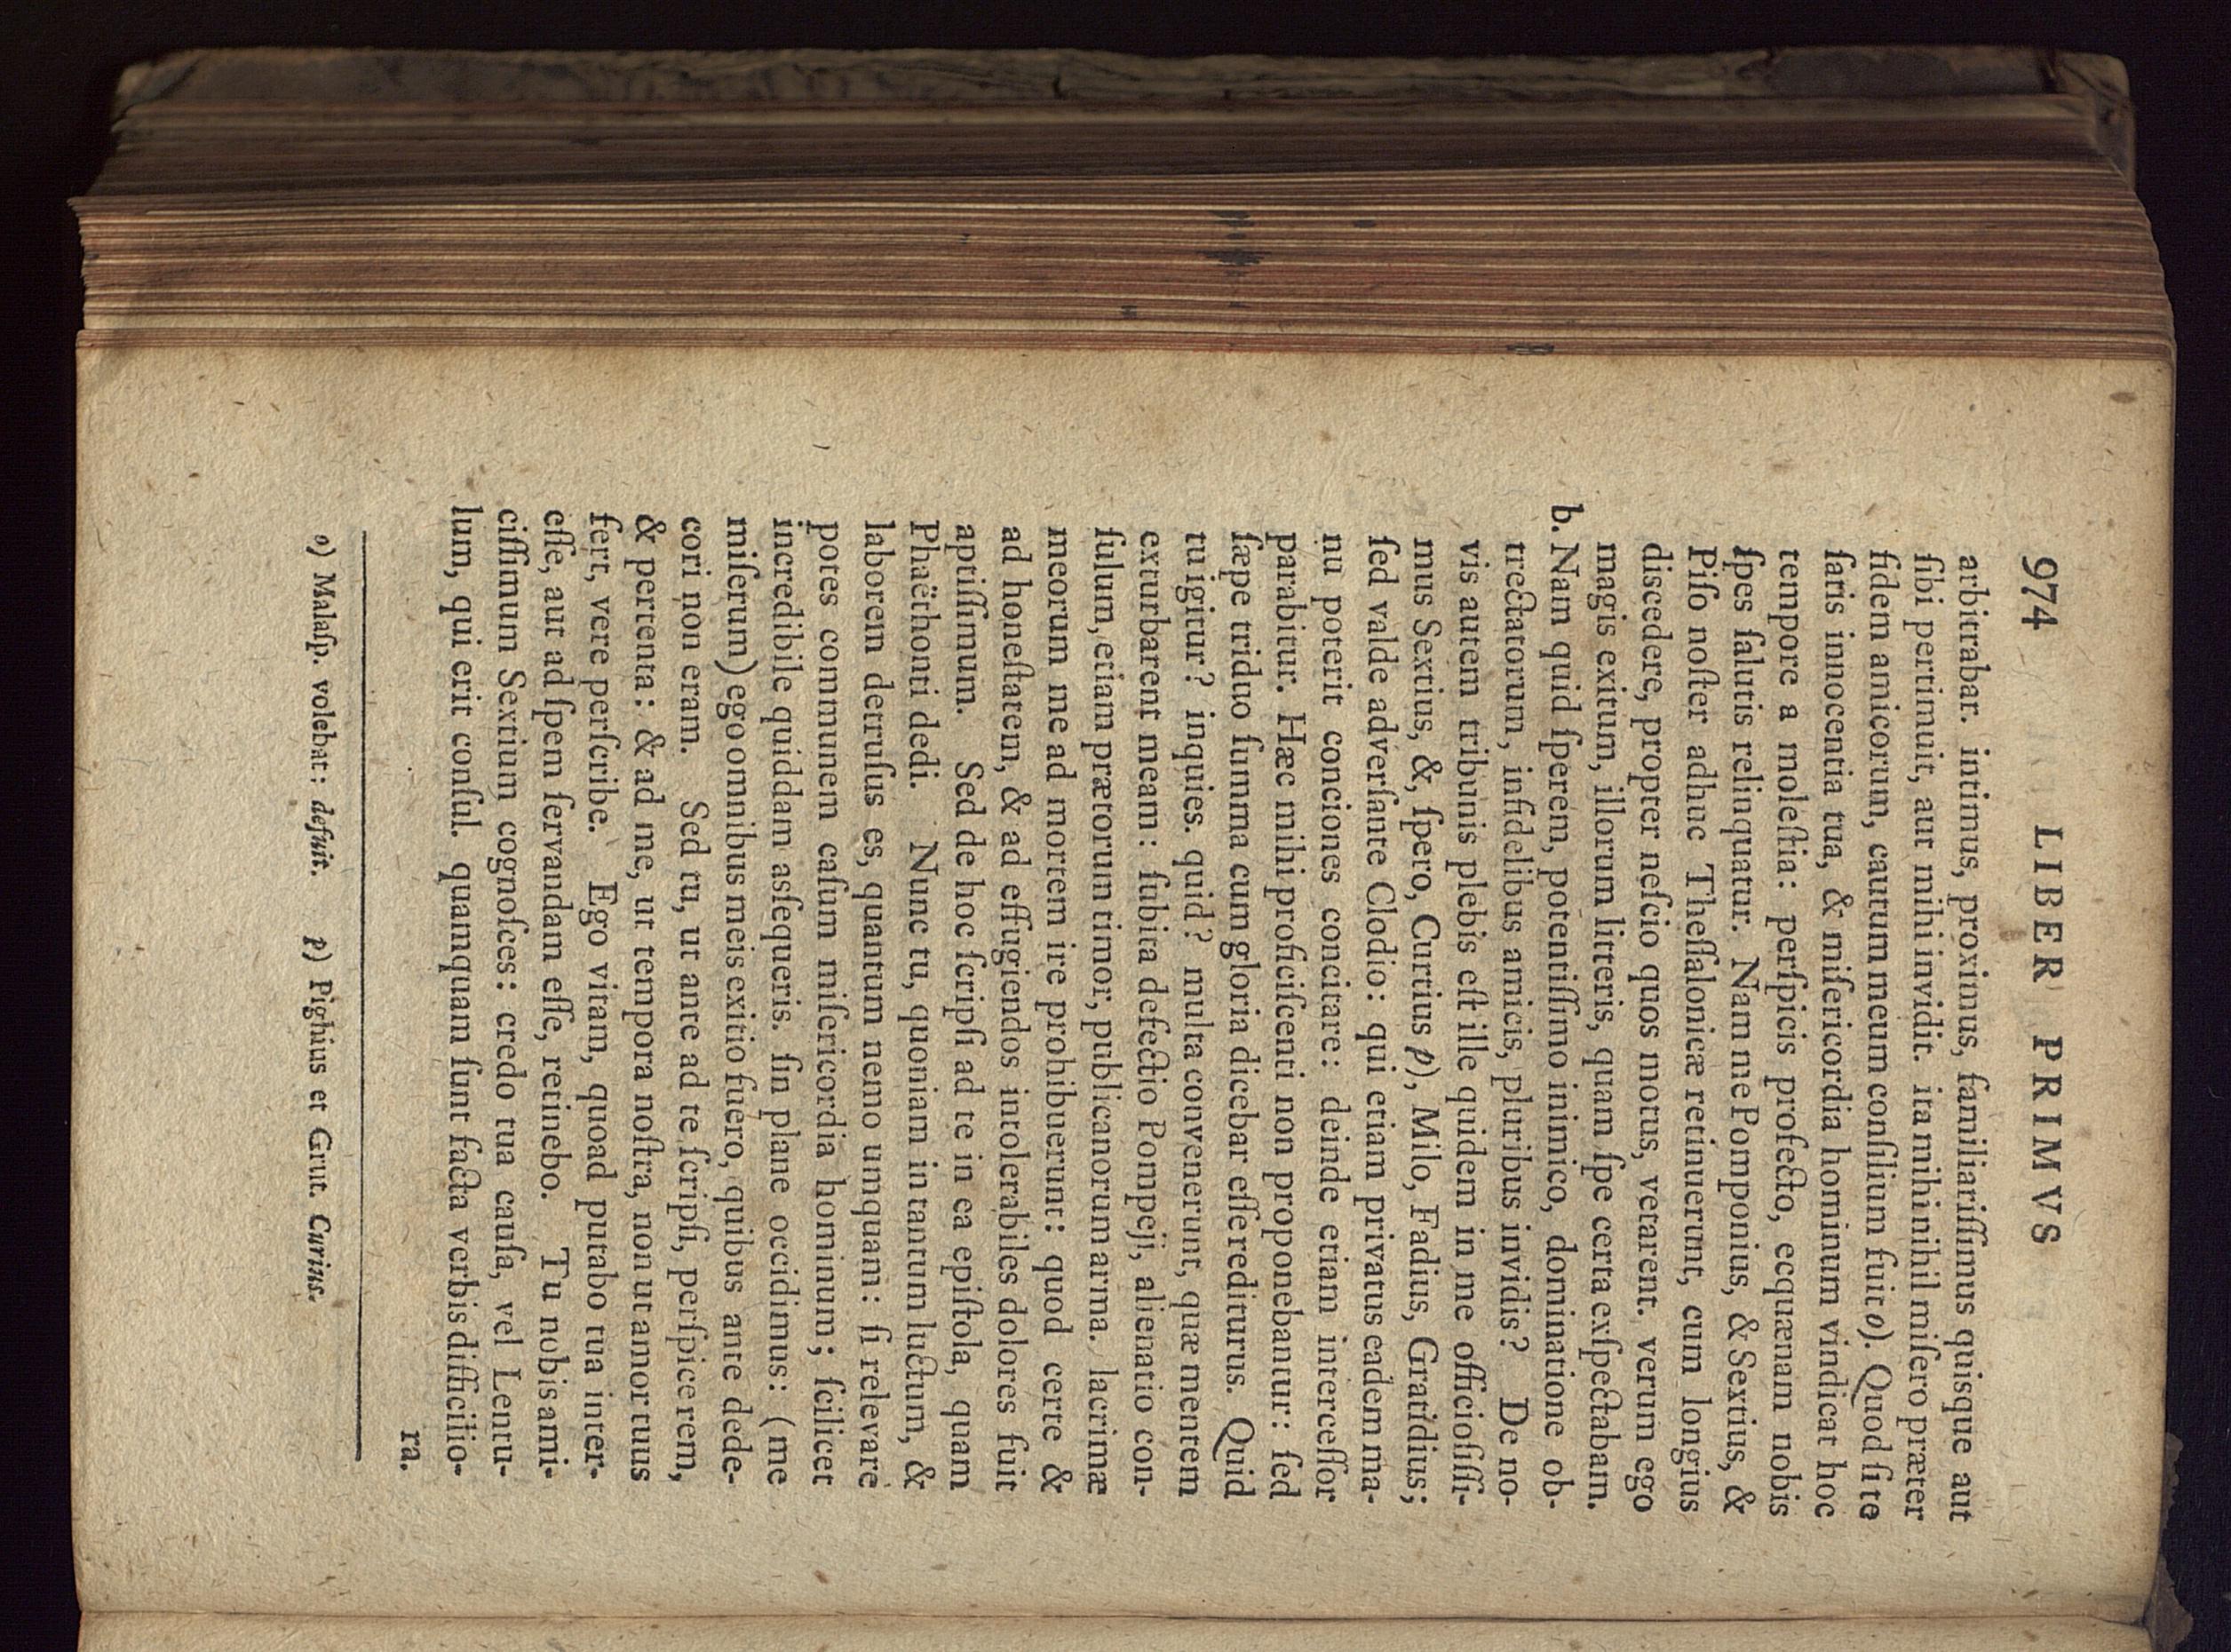 974 LIBER PRIMVS
arbitrabar. intimus, proximus, familiariſſimus quisque aut
ſibi pertimuit, aut mihi invidit. ita mihi nihil miſero præter
fidem amicorum, cautum meum conſilium fuit o). Quod ſi te
ſatis innocentia tua, & miſericordia hominum vindicat hoc
tempore a moleſtia: perſpicis profecto, ecquænam nobis
ſpes ſalutis relinquatur. Nam me Pomponius, & Sextius, &
Piſo noſter adhuc Theſſalonicæ retinuerunt, cum longius
discedere, propter neſcio quos motus, vetarent. verum ego
magis exitum, illorum litteris, quam ſpe certa exſpectabam.
b. Nam quid ſperem, potentiſſimo inimico, dominatione ob-
trectatorum, infidelibus amicis, pluribus invidis? De no-
vis autem tribunis plebis eſt ille quidem in me officioſiſſi-
mus Sextius, &, ſpero, Curtius p), Milo, Fadius, Gratidius;
ſed valde adverſante Clodio: qui etiam privatus eadem ma-
nu poterit conciones concitare: deinde etiam interceſſor
parabitur. Hæc mihi proficiſcenti non proponebantur: ſed
ſæpe triduo ſumma cum gloria dicebar eſſe rediturus. Quid
tu igitur? inquies. quid? multa convenerunt, quæ mentem
exturbarent meam: ſubita defectio Pompeji, alienatio con-
ſulum, etiam prætorum timor, publicanorum arma. lacrimæ
meorum me ad mortem ire prohibuerunt: quod certe &
ad honeſtatem, & ad effugiendos intolerabiles dolores fuit
aptiſſimum. Sed de hoc ſcripſi ad te in ea epiſtola, quam
Phaëthonti dedi. Nunc tu, quoniam in tantum luctum, &
laborem detruſus es, quantum nemo umquam: ſi relevare
potes communem caſum miſericordia hominum; ſcilicet
incredibile quiddam asſequeris. ſin plane occidimus: (me
miſerum) ego omnibus meis exitio fuero, quibus ante dede-
cori non eram. Sed tu, ut ante ad te ſcripſi, perſpice rem,
& pertenta: & ad me, ut tempora noſtra, non ut amor tuus
fert, vere perſcribe. Ego vitam, quoad putabo tua inter-
eſſe, aut ad ſpem ſervandam eſſe, retinebo. Tu nobis ami-
ciſſimum Sextium cognoſces: credo tua cauſa, vel Lentu-
lum, qui erit conſul. quamquam ſunt facta verbis difficilio-
ra.
o) Malaſp. volebat: defuit. p) Pighius et Grut. Curius.